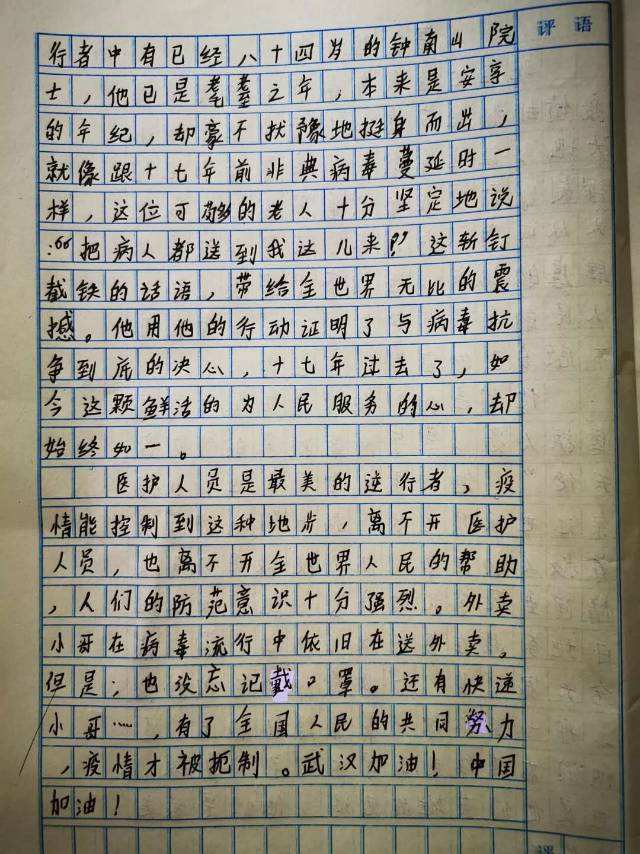 评语
行者中有已经八十四岁的钟南山院
士，他已是耄耋之年，本来是安享
的年纪，却豪不犹豫地挺身而出，
就像跟十七年前非典病毒蔓延时一
样，这位可敬的老人十分坚定地说
：“把病人都送到我这儿来！”这斩钉
截铁的话语，带给全世界无比的震
撼。他用他的行动证明了与病毒抗
争到底的决心，十七年过去了，如
今这颗鲜活的为人民服务的心，却
始终如一。
医护人员是最美的逆行者，疫
情能控制到这种地步，离不开医护
人员，也离不开全世界人民的帮助
，人们的防范意识十分强烈。外卖
小哥在病毒流行中依旧在送外卖。
但是；也没忘记戴口罩。还有快递
小哥……，有了全国人民的共同努力
，疫情才被扼制。武汉加油！中国
加油！